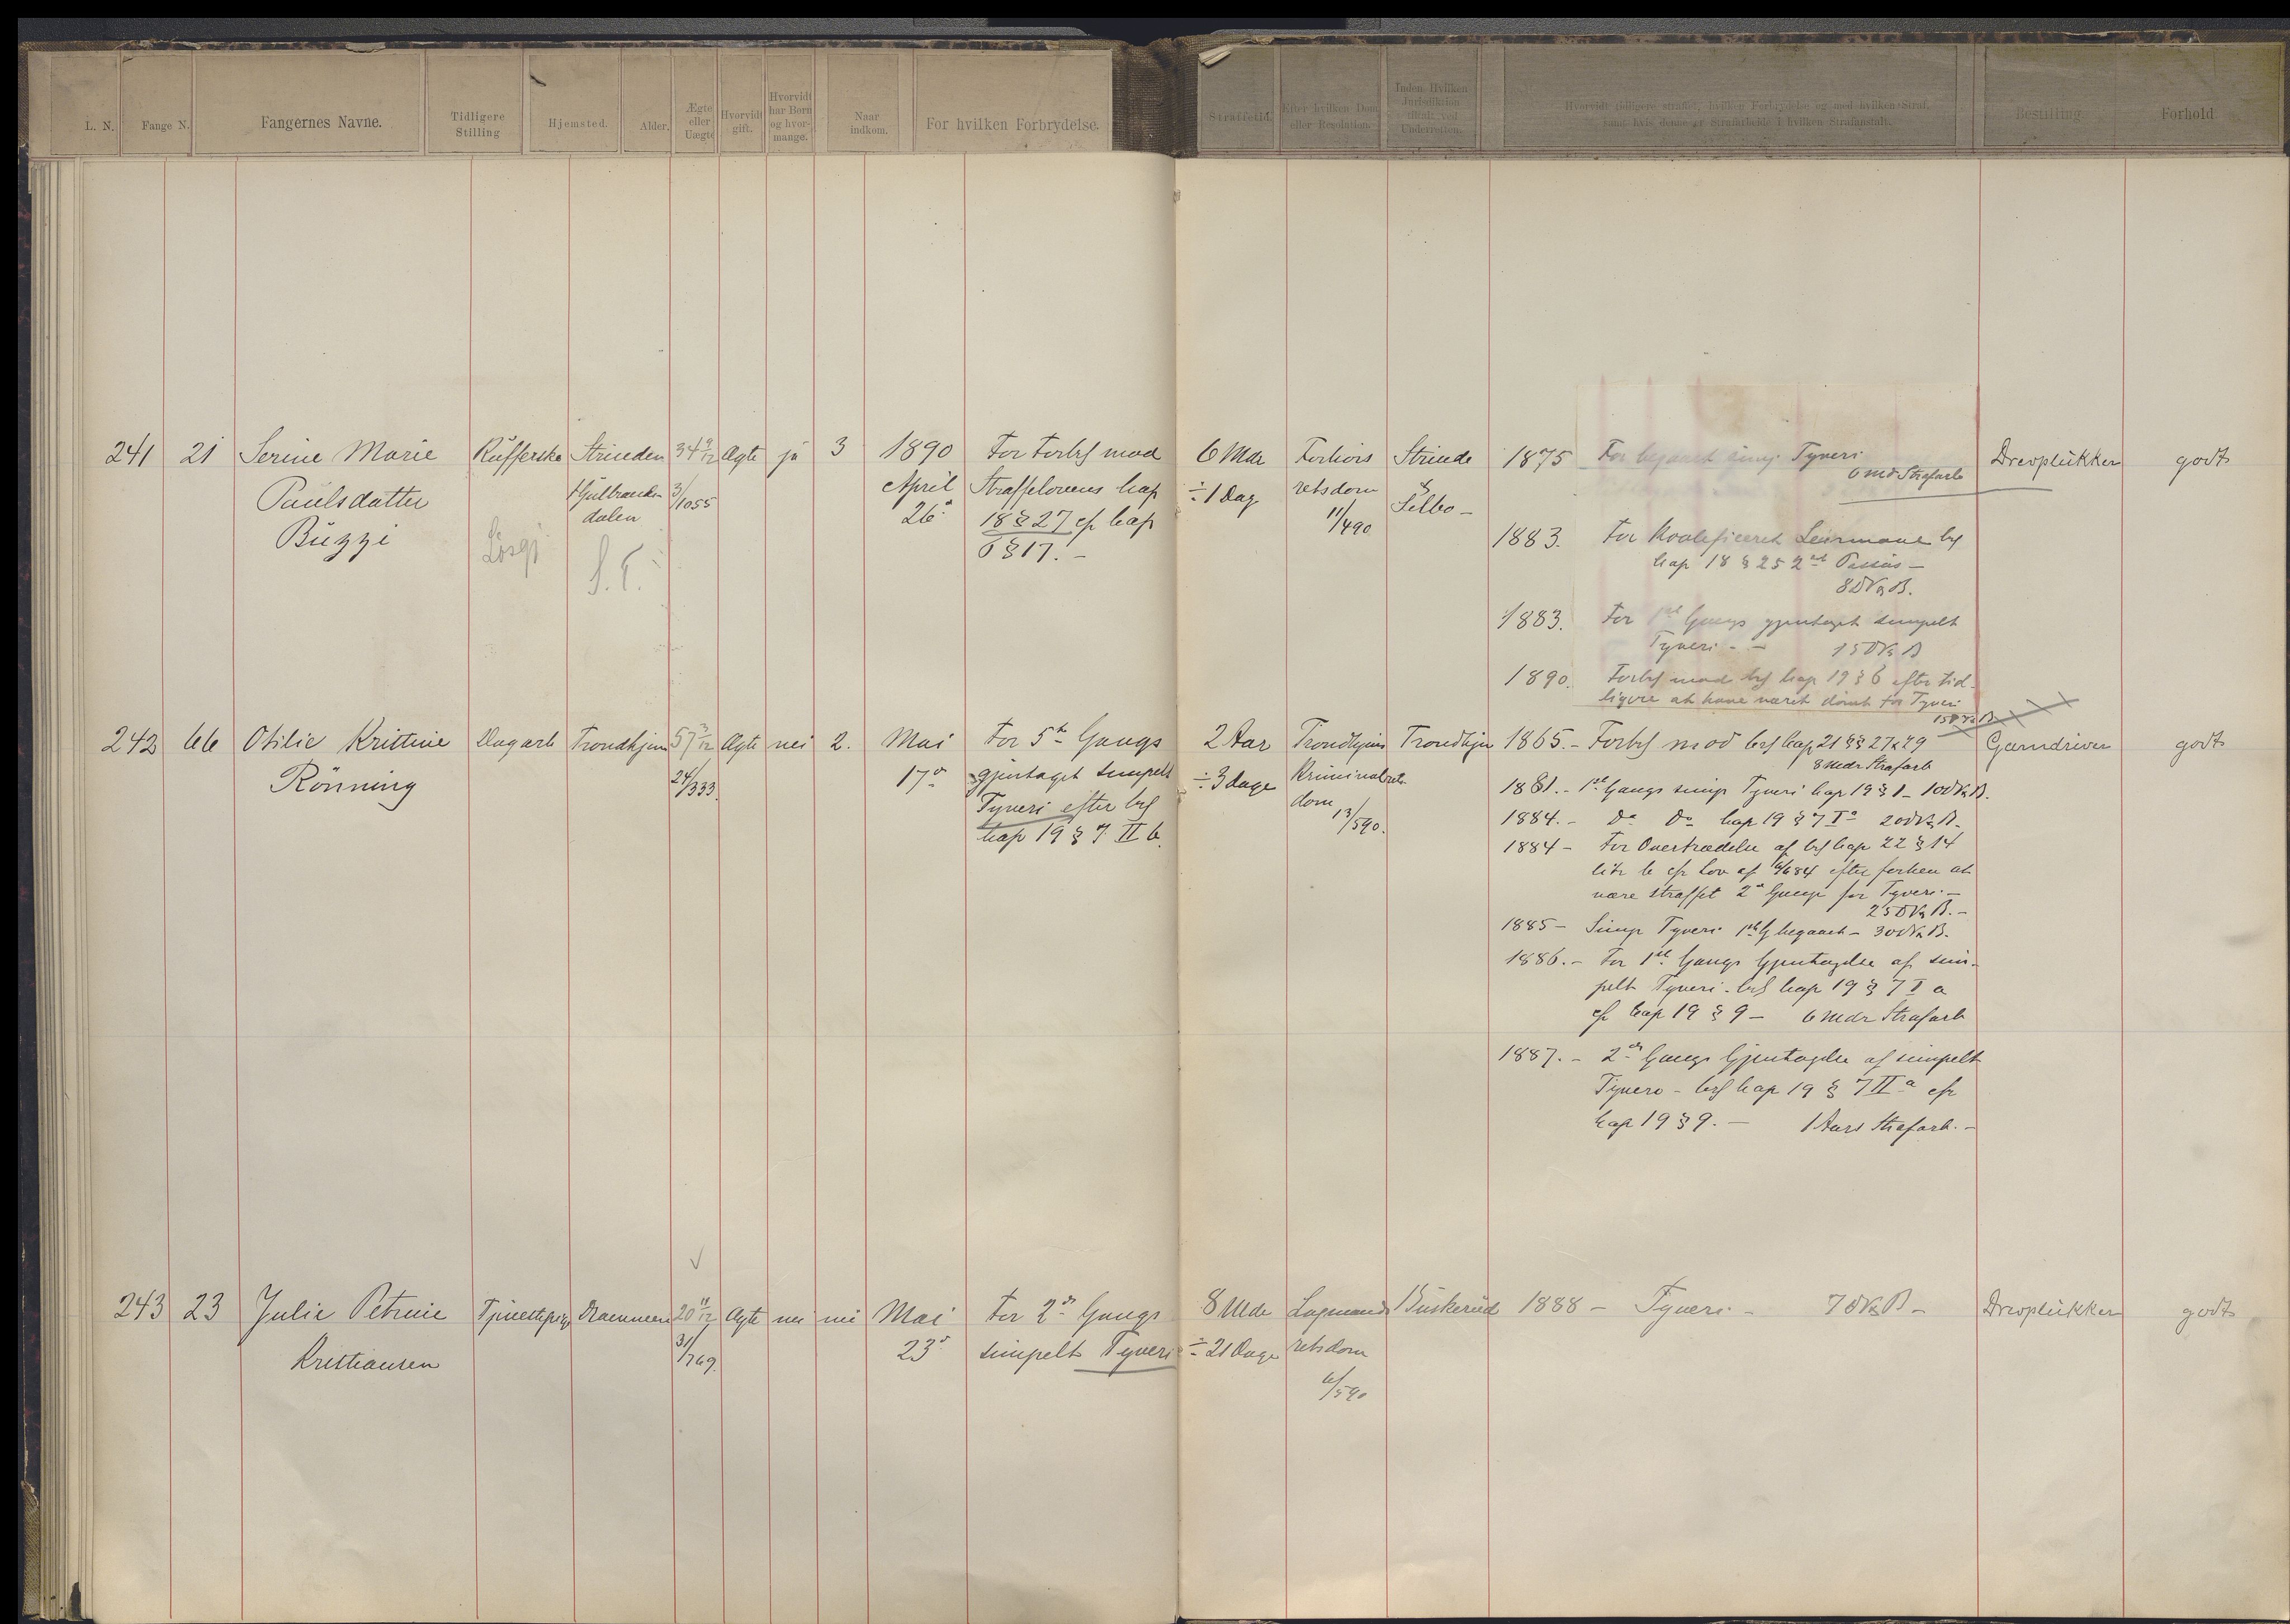 L. N.
Fange N.
Fangernes Navne.
Tidligere
Stilling
Hjemsted.
Alder.
Ægte
eller
Uægte
Hvorvidt
gift.
Hvorvidt
har Børn
og hvor-
mange.
Naar
indkom.
For hvilken Forbrydelse.
Straffetid.
Efter hvilken Dom
eller Resolution.
Inden Hvilken
Jurisdiktion
tiltalt ved
Underretten.
Hvorvidt tidligere straffet, hvilken Forbrydelse og med hvilken Straf,
samt hvis denne er Strafarbeide i hvilken Strafanstalt.
Bestilling
Forhold
241
21
Serine Marie
Paulsdatter
Buzzi
Strinden
Løsgj
dalen
S.T.
34 9/12
3/1055
Ægte
ja
3
1890
April
26
For Forbr mod
Straffelovens Cap
18 § 27 cfr Cap
6 § 17. -
6 Mdr
÷ 1 Dag
Forhørs
retsdom
11/490
Strinde
&
Selbo -
1875 For begaaet simp Tyveri
6 Mdr Strafarb
1883. For Kvalificeret
Cap 18 § 25 2det Passus -
8 D V & B.
1883. For 1ste Gangs gjentaget simpelt
Tyveri - - 15 D V & B
1890. Forbr mod Crl Cap 19 § 6 efter tid-
ligere at have været dømt for Tyveri
15 D V & B
Drevplukker
godt
242
66
Otilie Kristine
Rönning
Dagarb
Trondhjem
57 3/12
24/333.
Ægte
nei
2.
Mai
17
For 5te Gangs
gjentaget simpelt
Tyveri efter Crl
Cap 19 § 7 II b.
2 Aar
÷ 3 dage
Trondhjems
Kriminalrets
dom
13/590.
Trondhjem
1865. - Forbr mod Crl Cap 21 §§ 27 & 29
8 Mdr Strafarb
1881. - 1ste Gangs simp Tyveri Cap 19 § 1 - 10 D V & B.
1884. - Do Do Cap 19 § 7 I a 20 D V & B.
1884 - For Overtrædelse af Crl Cap 22 § 14
litr b cfr Lov af efter forhen at
være straffet 2 Gange for Tyveri. -
25 D V & B. -
1885 - Simp Tyveri 1ste G begaaet - 30 D V & B.
1886. - For 1ste Gangs Gjentagelse af sim-
pelt Tyveri - Crl Cap 19 § 7 I a
cfr Cap 19 § 9 - 6 Mdr Strafarb
1887. - 2den Gangs Gjentagelse af simpelt
Tyveri - Crl Cap 19 § 7 II a cfr
Cap 19 § 9. - 1 Aars Strafarb. -
Garndriver
godt
243
23
Julie Petrine
Kristiansen
Tjenestepige
Drammen
20 11/12
31/769.
Ægte
nei
nei
Mai
23
For 2den Gangs
simpelt Tyveri
8 Mdr
÷ 21 Dage
Lagmands
retsdom
6/590
Buskerud
1888 - Tyveri - 7 D V & B -
Drevplukker
godt